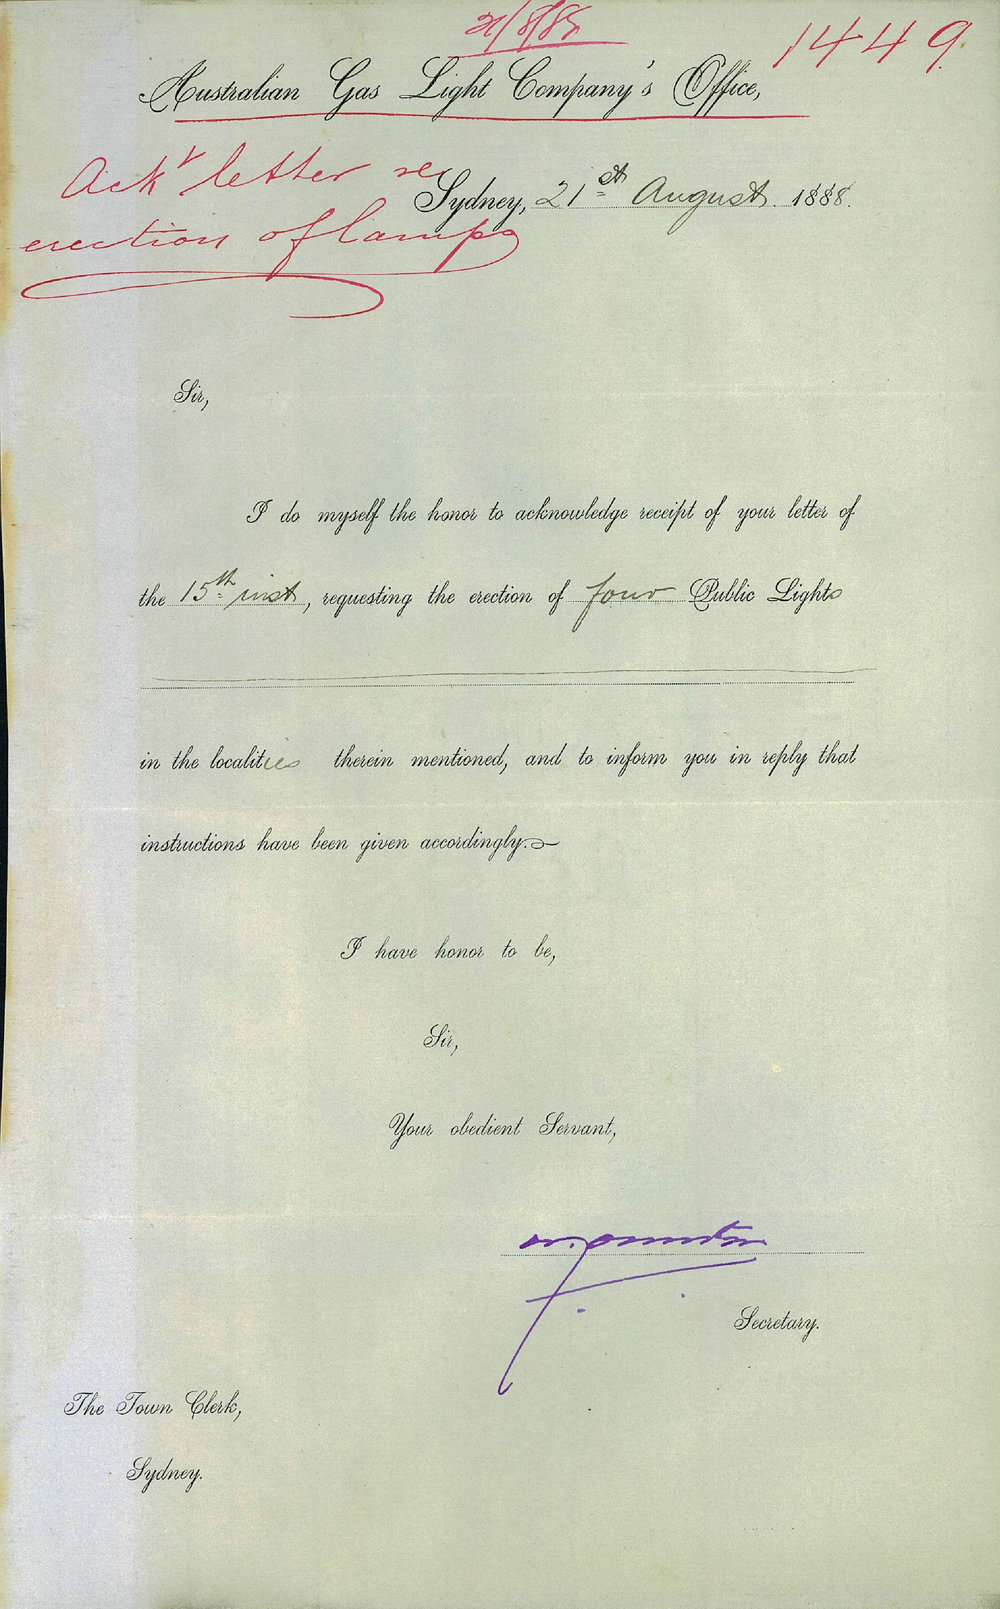 21/8/88
1449.
Australian Gas Light Company's Office,
Ackr letter re
Sydney, 21st August. 1888.
erection of lamps
Sir,
I do myself the honor to acknowledge receipt of your letter of
the 15th inst, requesting the erection of four Public Lights
in the localities therein mentioned, and to inform you in reply that
instructions have been given accordingly.
I have honor to be,
Sir,
Your obedient Servant,
Secretary.
The Town Clerk,
Sydney.